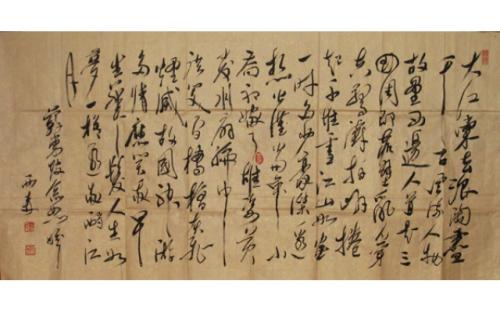 大江東去浪淘盡
千古風流人物
故壘西邊人道是三
國周郎赤壁亂石穿
空驚濤拍岸捲
起千堆雪江山如畫
一時多少豪傑遙
想公瑾當年小
喬初嫁了雄姿英
發羽扇綸巾
談笑間檣櫓灰飛
煙滅故國神游
多情應笑我早
生華髮人生如
夢一樽還酹江
月
蘇東坡念奴嬌